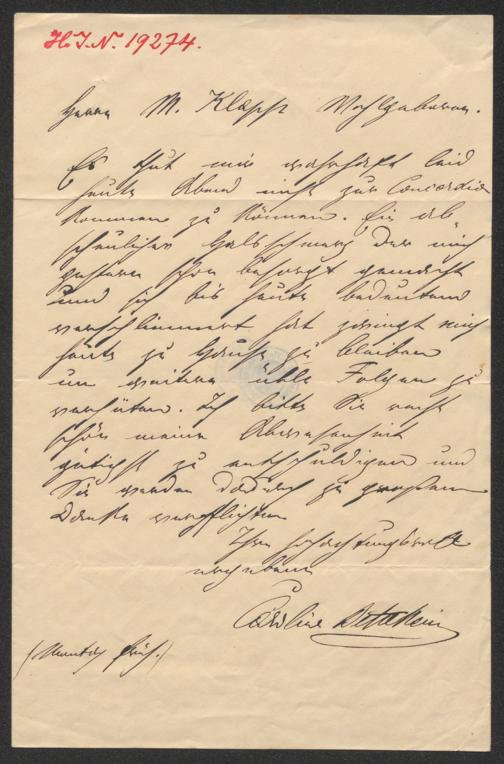 H.I.N. 19274.
Herrn M. Klapp Wohlgeboren.
Es thut mir wahrhaft leid
heute Abend nicht zur Concordia
kommen zu können. Ein ab-
scheulicher Halsschmerz der mich
gestern schon besorgt gemacht
und sich bis heute bedeutend
verschlimmert hat zwingt mich
heute zu Hause zu bleiben
um weitere üble Folgen zu
verhüten. Ich bitte Sie recht
schön meine Abwesenheit
gütigst zu entschuldigen und
Sie werden dadurch zu großem
Danke verpflichten
Ihre hochachtungsvoll
ergebene
Caroline
(Montag früh.)